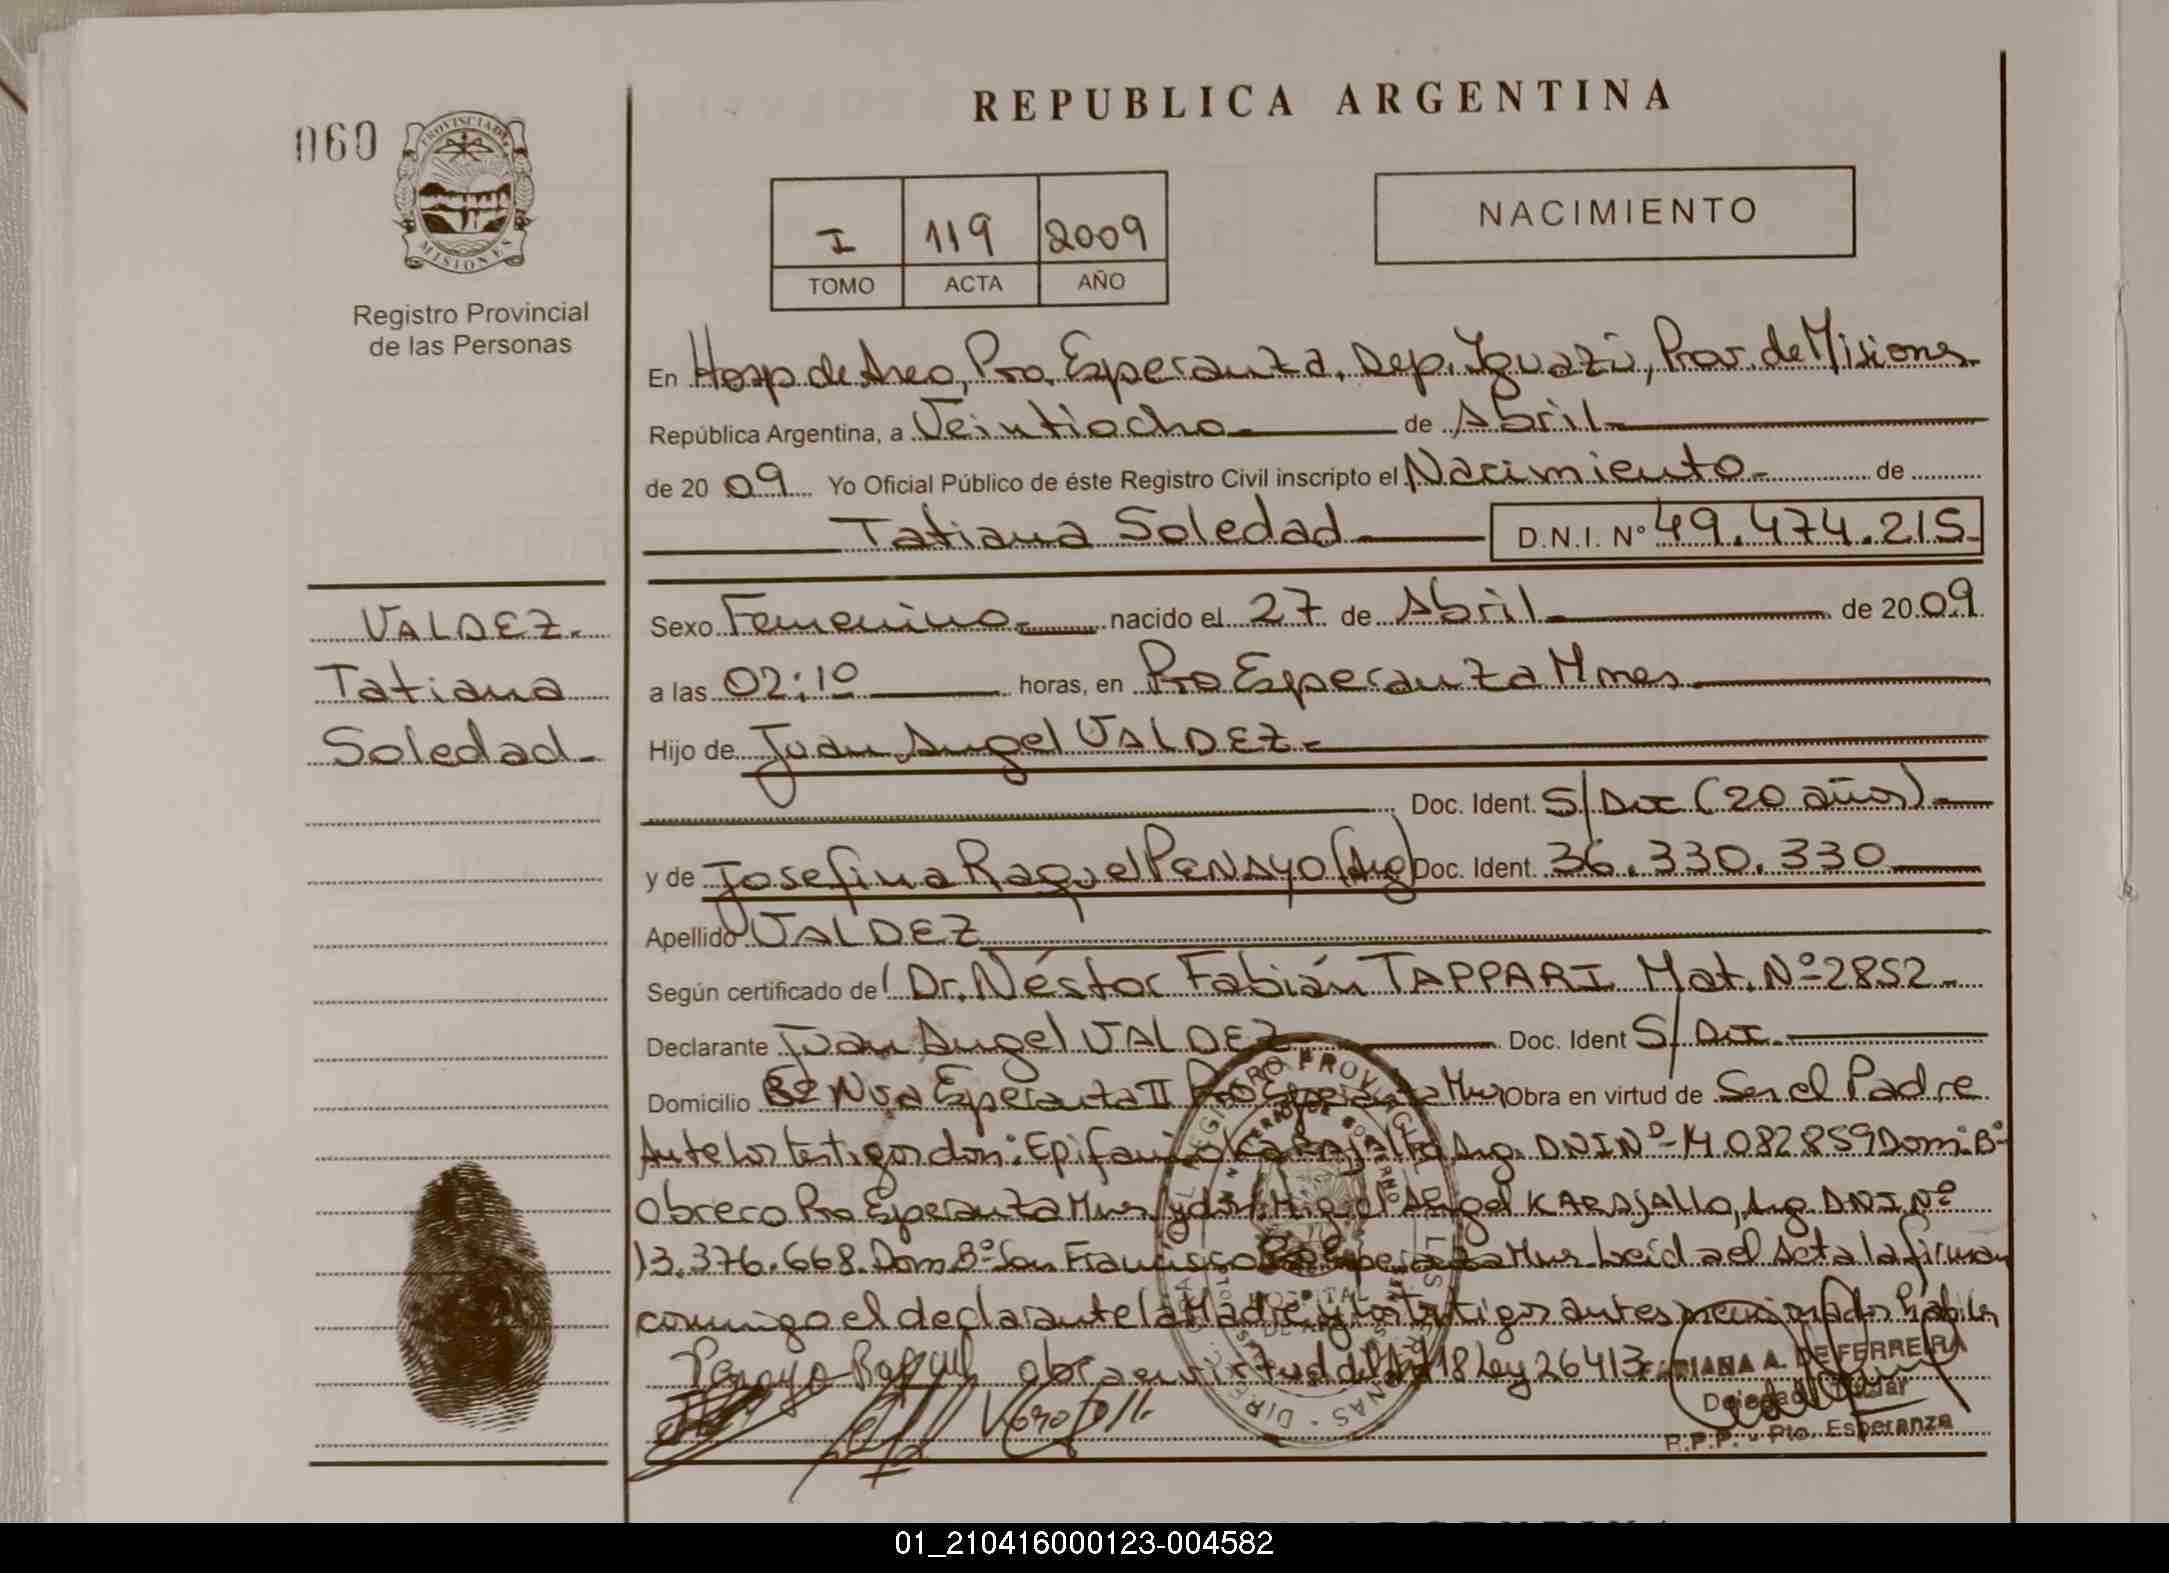 REPUBLICA ARGENTINA
060
PROVINCIA DE MISIONES
Registro Provincial
de las Personas
I 119 2009
TOMO ACTA AÑO
NACIMIENTO
En Hosp de Area, Pto. Esperanza, Dep. Iguazú, Prov. de Misiones
República Argentina, a Veintiocho de Abril
de 2009 Yo Oficial Público de éste Registro Civil inscripto el Nacimiento de
Tatiana Soledad D.N.I. N° 49.474.215
VALDEZ
Tatiana
Soledad
Sexo Femenino nacido el 27 de Abril de 2009
a las 02:10 horas, en Pto Esperanza Mnes
Hijo de Juan Angel VALDEZ
Doc. Ident. S/Doc (20 años)
y de Josefina Raquel PENAYO (Arg) Doc. Ident. 36.330.330
Apellido VALDEZ
Según certificado de Dr. Néstor Fabián TAPPARI Mat. Nº 2852
Declarante Juan Angel VALDEZ Doc. Ident S/Doc
Domicilio Bº Nva Esperanza II Pto Esperanza Mnes Obra en virtud de Ser el Padre
Ante los testigos don: Epifanio Arg. DNI Nº 14.082.859 Dom: Bº
Obrero Pto Esperanza Mnes y don: Miguel Angel KARAJALLO, Arg. DNI Nº
13.376.668 Dom Bº San Francisco Pto Esperanza Mnes Leida el Acta la firman
conmigo el declarante la Madre y los Testigos antes mencionados hábiles
Penayo Raquel obra en virtud del Art 18 Ley 26413
A. DE FERREIRA
Delegada Titular
R.P.P. - Pto. Esperanza
01_210416000123-004582